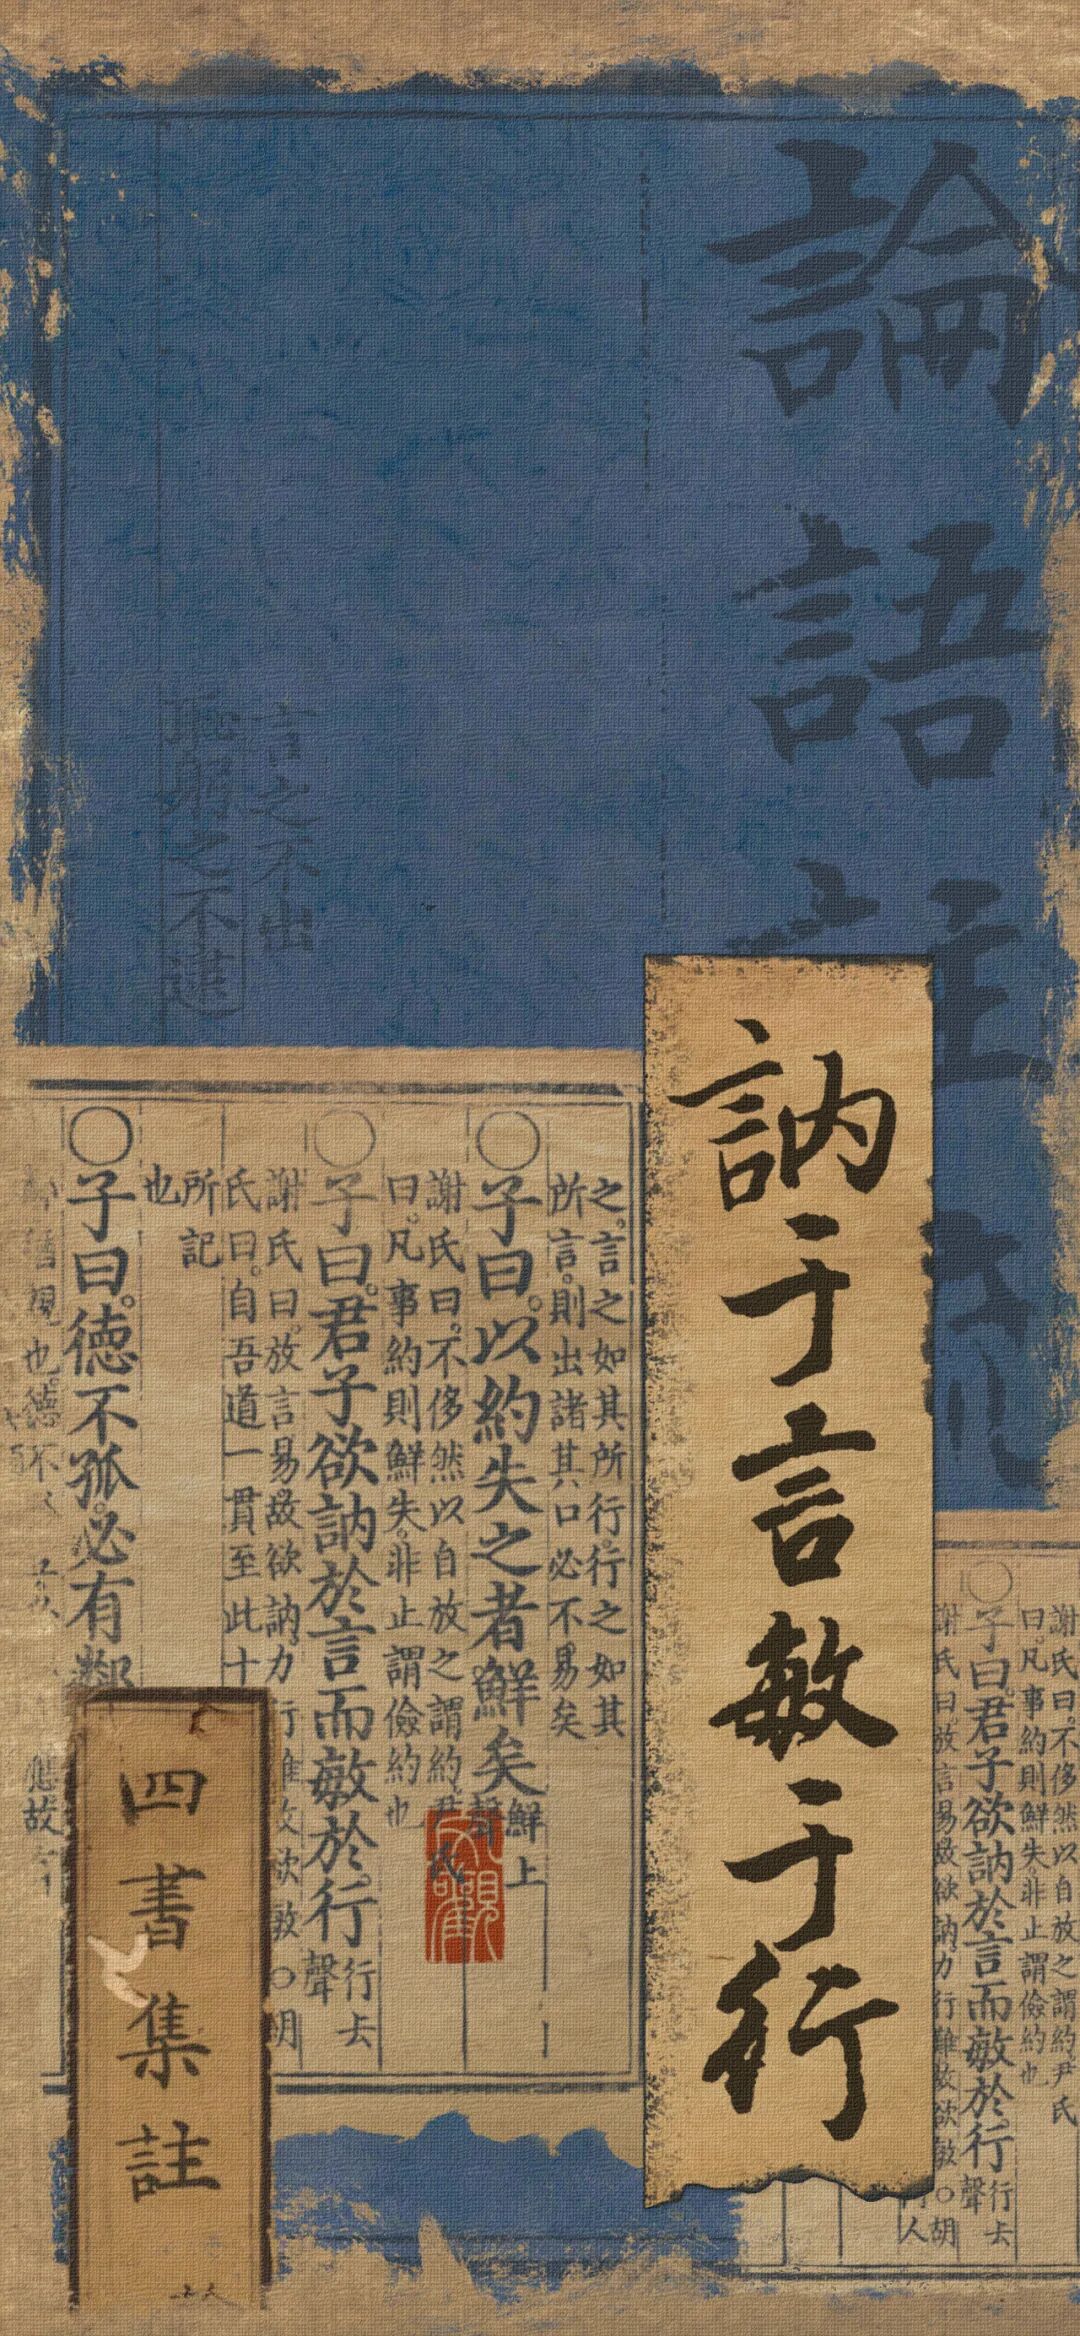 論語註疏
言之不出
恥躬之不逮
訥于言敏于行
之言之如其所行行之如其
所言則出諸其口必不易矣
○子曰以約失之者鮮矣
鮮上
聲
謝氏曰不侈然以自放之謂約尹氏
曰凡事約則鮮失非止謂儉約也
○子曰君子欲訥於言而敏於行
行去
聲
謝氏曰放言易故欲訥力行難故欲敏○胡
氏曰自吾道一貫至此十
所記
也
○子曰德不孤必有鄰
四書集註
謝氏曰不侈然以自放之謂約尹氏
曰凡事約則鮮失非止謂儉約也
○子曰君子欲訥於言而敏於行
行去
聲
謝氏曰放言易故欲訥力行難故欲敏○胡
人